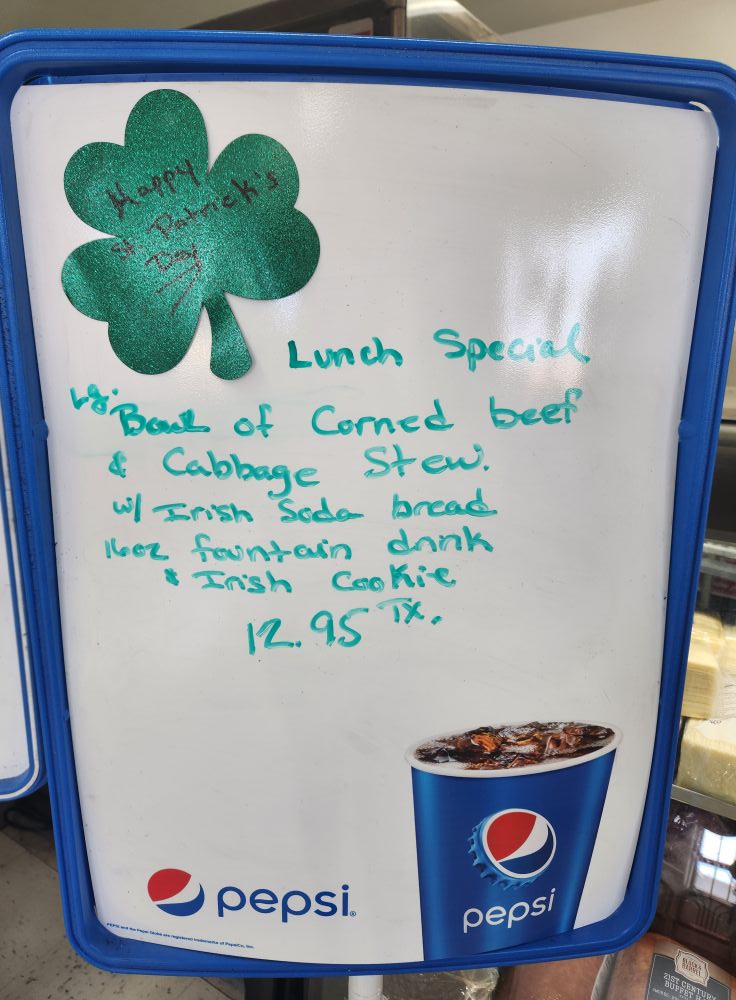 Happy
St. Patrick's
Day
Lunch Special
Lg. Bowl of Corned beef
& Cabbage Stew.
w/ Irish Soda bread
16oz fountain drink
& Irish Cookie
12.95 TX.
pepsi
pepsi®
PEPSI and the Pepsi Globe are registered trademarks of PepsiCo, Inc.
21ST CENTURY
BUFFET